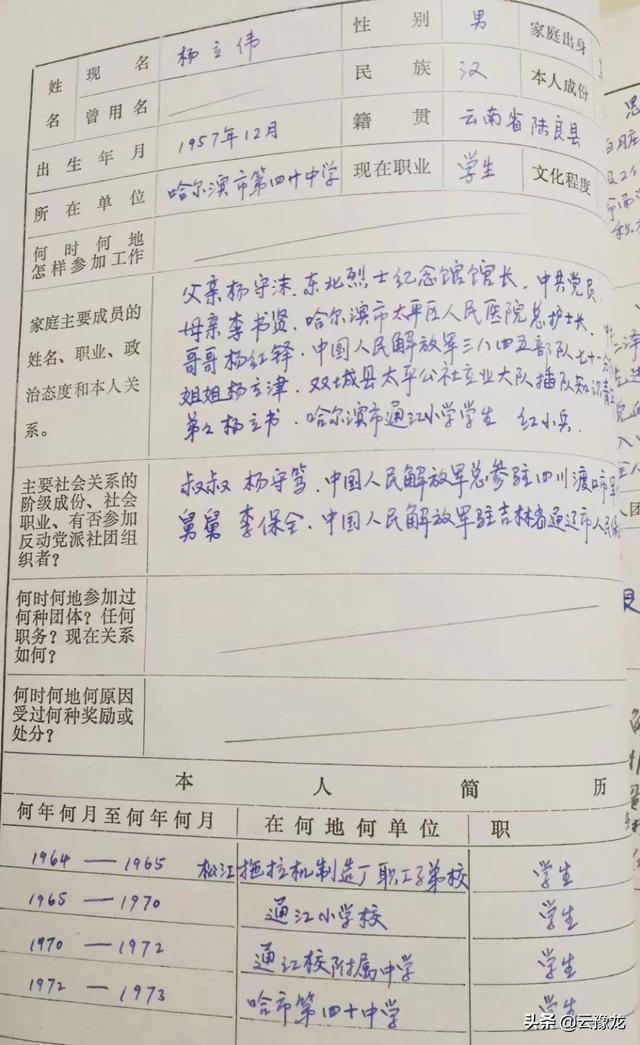 姓名 现名 杨立伟 性别 男 家庭出身
曾用名 民族 汉 本人成份
出生年月 1957年12月 籍贯 云南省陆良县
所在单位 哈尔滨市第四十中学 现在职业 学生 文化程度
何时何地
怎样参加工作
家庭主要成员的
姓名、职业、政
治态度和本人关
系。
父亲杨守沫.东北烈士纪念馆馆长.中共党员
母亲李书贤.哈尔滨市太平区人民医院总护士长.
哥哥杨红铎.中国人民解放军三八四五部队七十一分
姐姐杨立津.双城县太平公社立业大队插队知识青
弟弟杨立书.哈尔滨市通江小学学生 红小兵.
主要社会关系的
阶级成份、社会
职业、有否参加
反动党派社团组
织者?
叔叔 杨守笃.中国人民解放军总参驻四川渡口市
舅舅 李保全.中国人民解放军驻吉林省通辽市人民
何时何地参加过
何种团体?任何
职务?现在关系
如何?
何时何地何原因
受过何种奖励或
处分?
本人简历
何年何月至何年何月 在何地何单位 职
1964—1965 松江拖拉机制造厂职工子弟校 学生
1965—1970 通江小学校 学生
1970—1972 通江校附属中学 学生
1972—1973 哈市第四十中学 学生
头条 @云豫龙